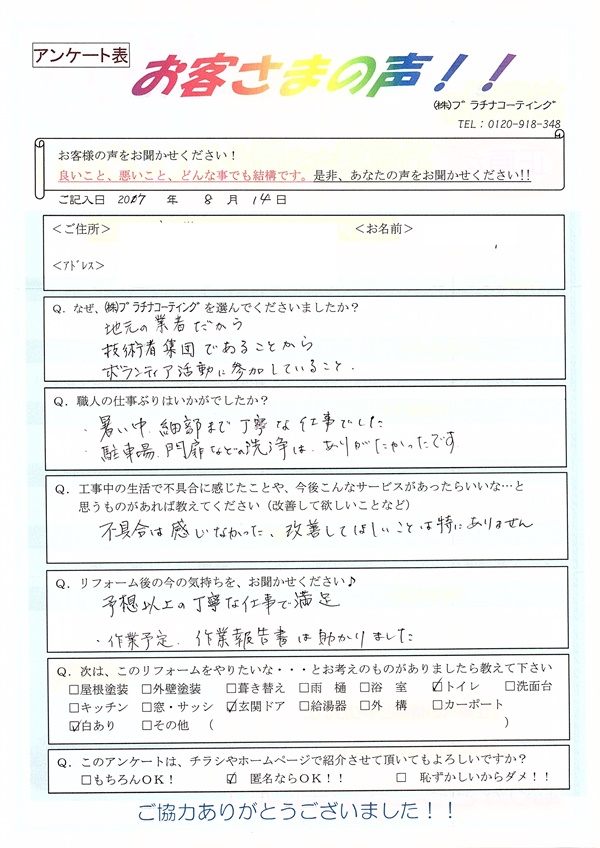 アンケート表
お客さまの声！！
㈱プラチナコーティング
TEL：0120-918-348
お客様の声をお聞かせください！
良いこと、悪いこと、どんな事でも結構です。是非、あなたの声をお聞かせください!!
ご記入日 2017 年 8 月 14 日
＜ご住所＞ ＜お名前＞
＜ｱﾄﾞﾚｽ＞
Q．なぜ、㈱プラチナコーティングを選んでくださいましたか？
地元の業者だから
技術者集団であることから
ボランティア活動に参加していること．
Q．職人の仕事ぶりはいかがでしたか？
・暑い中、細部まで丁寧な仕事でした
・駐車場、門扉などの洗浄は、ありがたかったです
Q．工事中の生活で不具合に感じたことや、今後こんなサービスがあったらいいな…と
思うものがあれば教えてください（改善して欲しいことなど）
不具合は感じなかった、改善してほしいことは特にありません
Q．リフォーム後の今の気持ちを、お聞かせください♪
予想以上の丁寧な仕事で満足
・作業予定、作業報告書は助かりました
Q．次は、このリフォームをやりたいな・・・とお考えのものがありましたら教えて下さい
□屋根塗装 □外壁塗装 □葺き替え □雨 樋 □浴 室 ☑トイレ □洗面台
□キッチン □窓・サッシ ☑玄関ドア □給湯器 □外 構 □カーポート
☑白あり □その他 （ ）
Q．このアンケートは、チラシやホームページで紹介させて頂いてもよろしいですか？
□もちろんOK！ ☑ 匿名ならOK！！ □ 恥ずかしいからダメ！！
ご協力ありがとうございました！！